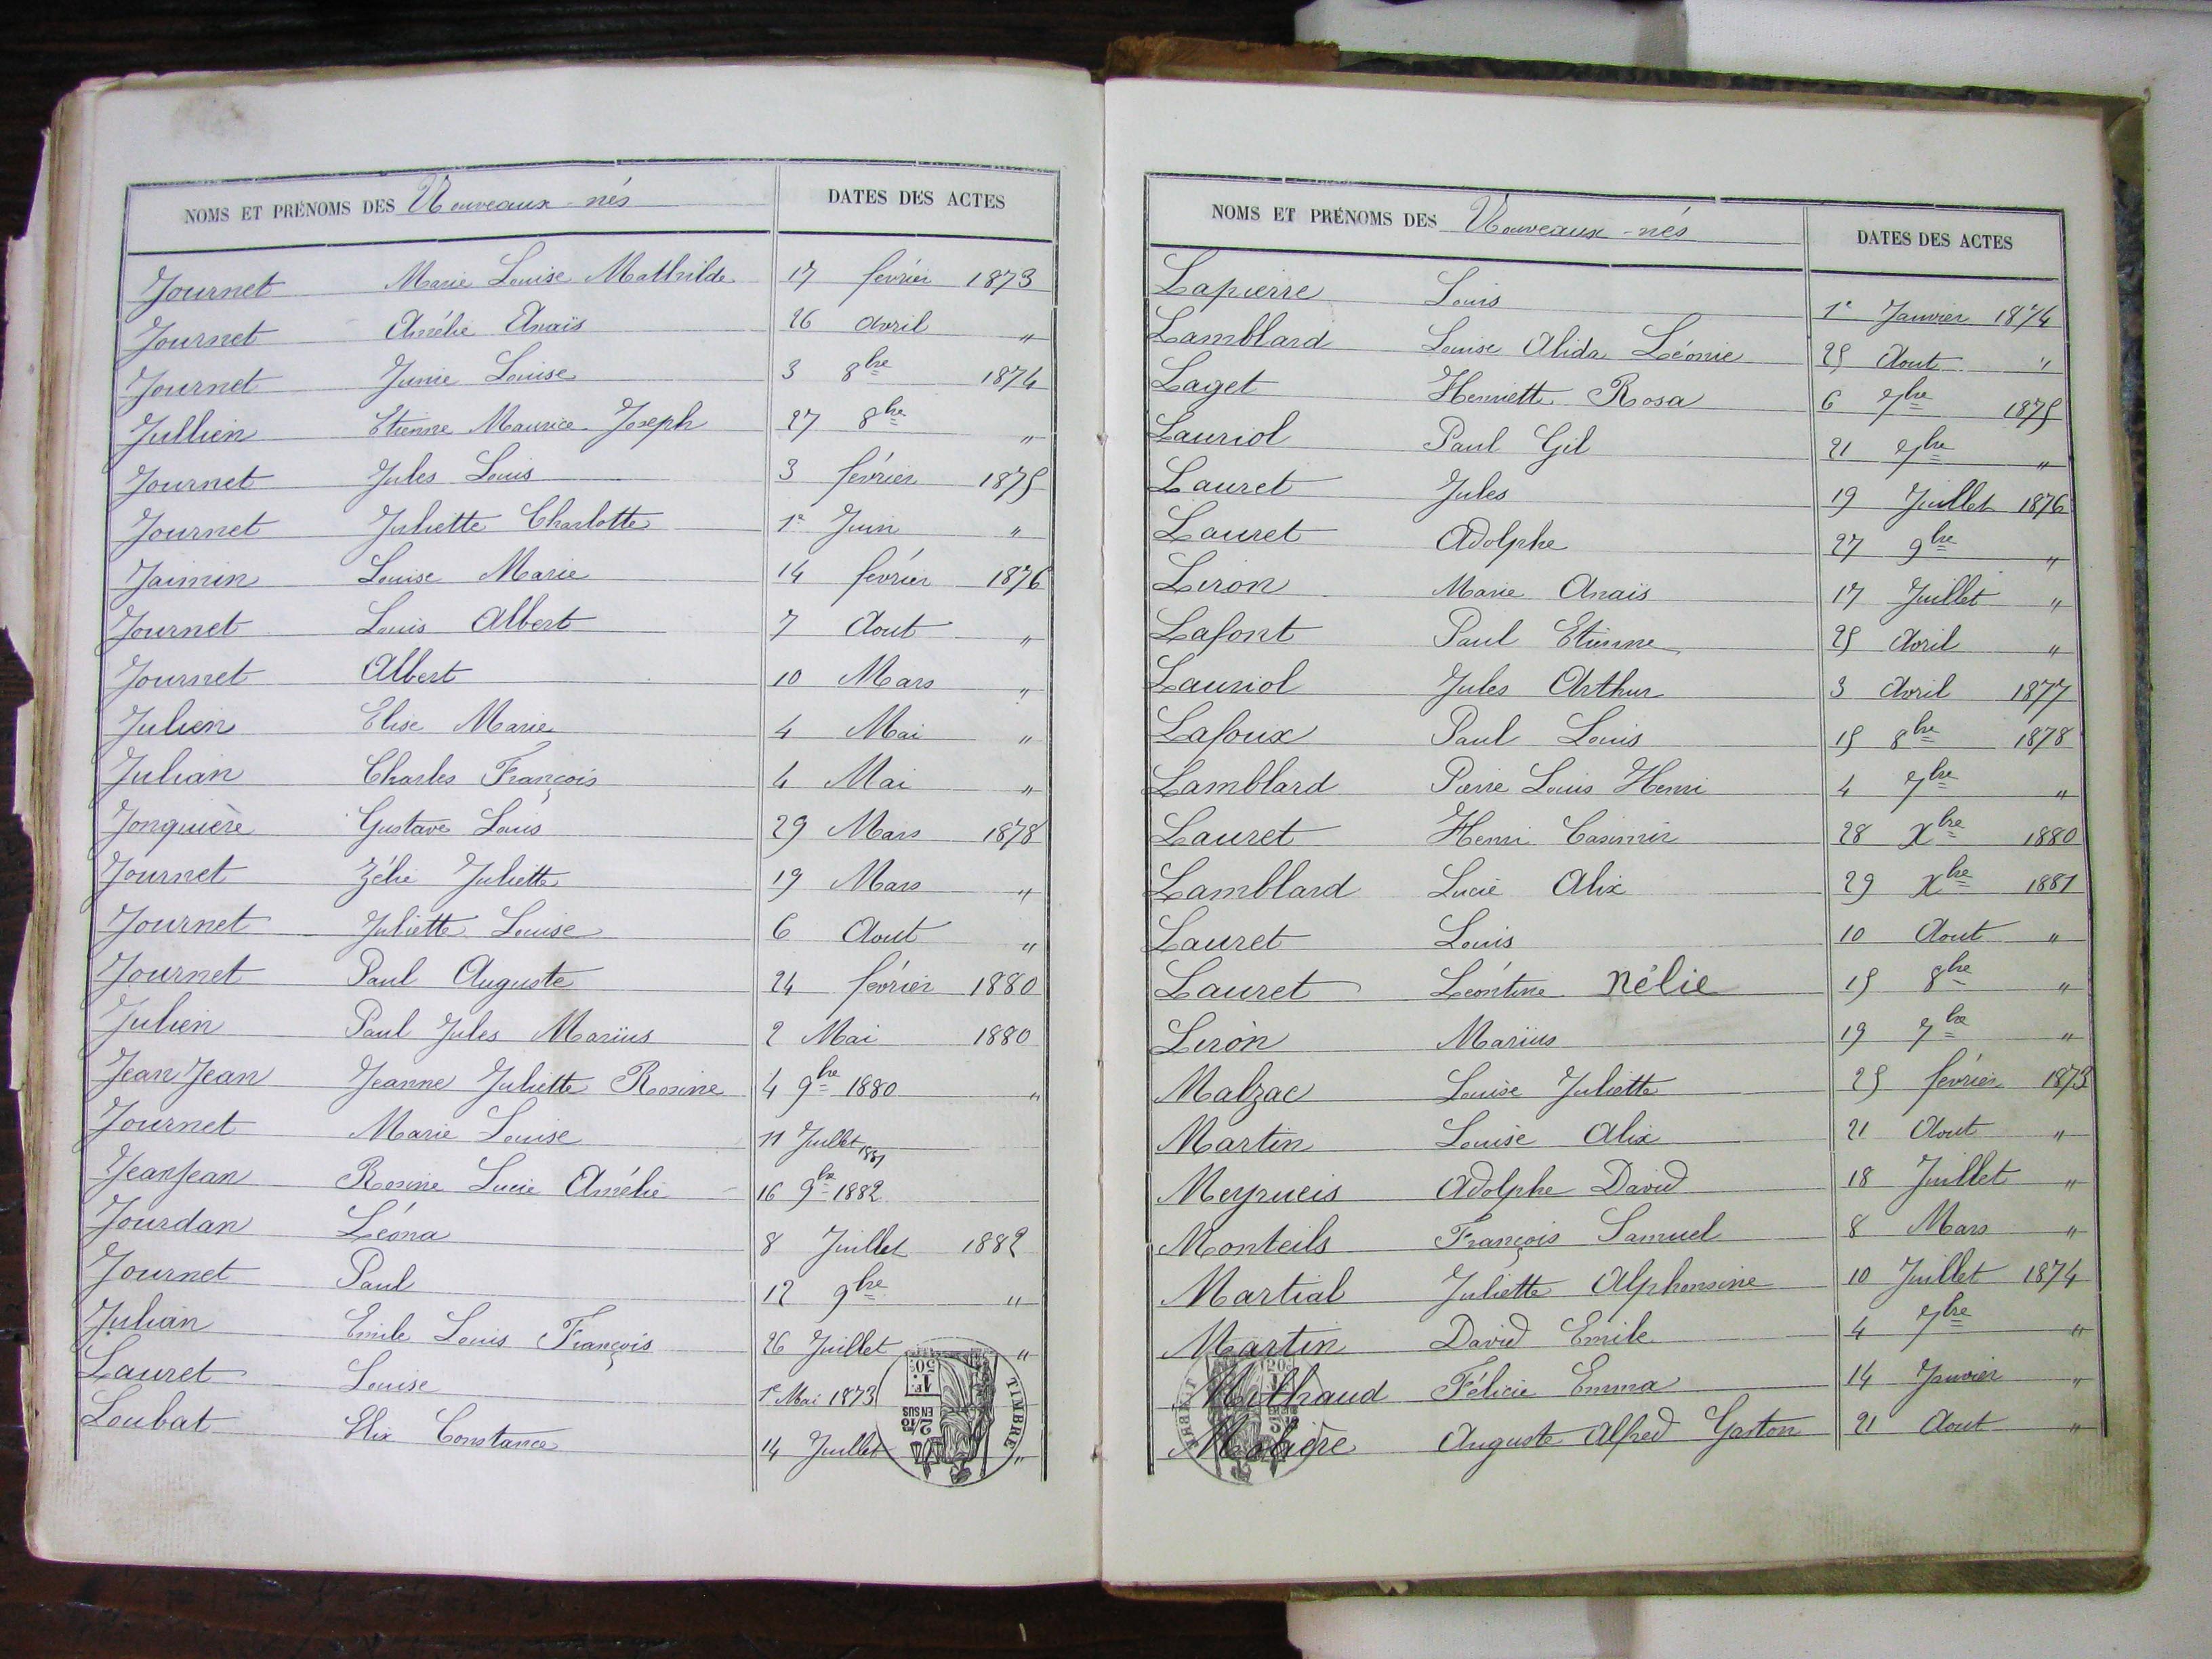 NOMS ET PRÉNOMS DES Nouveaux-nés DATES DES ACTES
Journet Marie Louise Mathilde 17 février 1873
Journet Amélie Anaïs 26 Avril "
Journet Junie Louise 3 8bre 1874
Jullien Etienne Maurice Joseph 27 8bre "
Journet Jules Louis 3 février 1875
Journet Juliette Charlotte 1er Juin "
Jaimin Louise Marie 14 février 1876
Journet Louis Albert 7 Aout "
Journet Albert 10 Mars "
Julien Elise Marie 4 Mai "
Julian Charles François 4 Mai "
Jonquière Gustave Louis 29 Mars 1878
Journet Zélie Juliette 19 Mars "
Journet Juliette Louise 6 Aout "
Journet Paul Auguste 24 février 1880
Julien Paul Jules Marius 2 Mai 1880
Jean Jean Jeanne Juliette Rosine 4 9bre 1880 "
Journet Marie Louise 11 Juillet 1881
Jeanjean Rosine Lucie Amélie 16 9bre 1882
Jourdan Léona 8 Juillet 1882
Journet Paul 12 9bre "
Julian Emile Louis François 26 Juillet "
Lauret Louise 1er Mai 1873
Loubat Elix Constance 14 Juillet "
TIMBRE
1F. 50c.
2/10 EN SUS
NOMS ET PRÉNOMS DES Nouveaux-nés DATES DES ACTES
Lapierre Louis 1er Janvier 1874
Lamblard Louise Alida Léonie 25 Aout "
Laget Henriette Rosa 6 7bre 1875
Lauriol Paul Gil 21 7bre "
Lauret Jules 19 Juillet 1876
Lauret Adolphe 27 9bre "
Liron Marie Anaïs 17 Juillet "
Lafont Paul Etienne 25 Avril "
Lauriol Jules Arthur 3 Avril 1877
Lafoux Paul Louis 15 8bre 1878
Lamblard Pierre Louis Henri 4 7bre "
Lauret Henri Casimir 28 Xbre 1880
Lamblard Lucie Alix 29 Xbre 1881
Lauret Louis 10 Aout "
Lauret Léontine Nélie 15 8bre "
Liron Marius 19 7bre "
Malzac Louise Juliette 25 février 1873
Martin Louise Alix 21 Aout "
Meyrueis Adolphe David 18 Juillet "
Monteils François Samuel 8 Mars "
Martial Juliette Alphonsine 10 Juillet 1874
Martin David Emile 4 7bre "
Félicie Emma 14 Janvier "
Auguste Alfred Gaston 21 Aout "